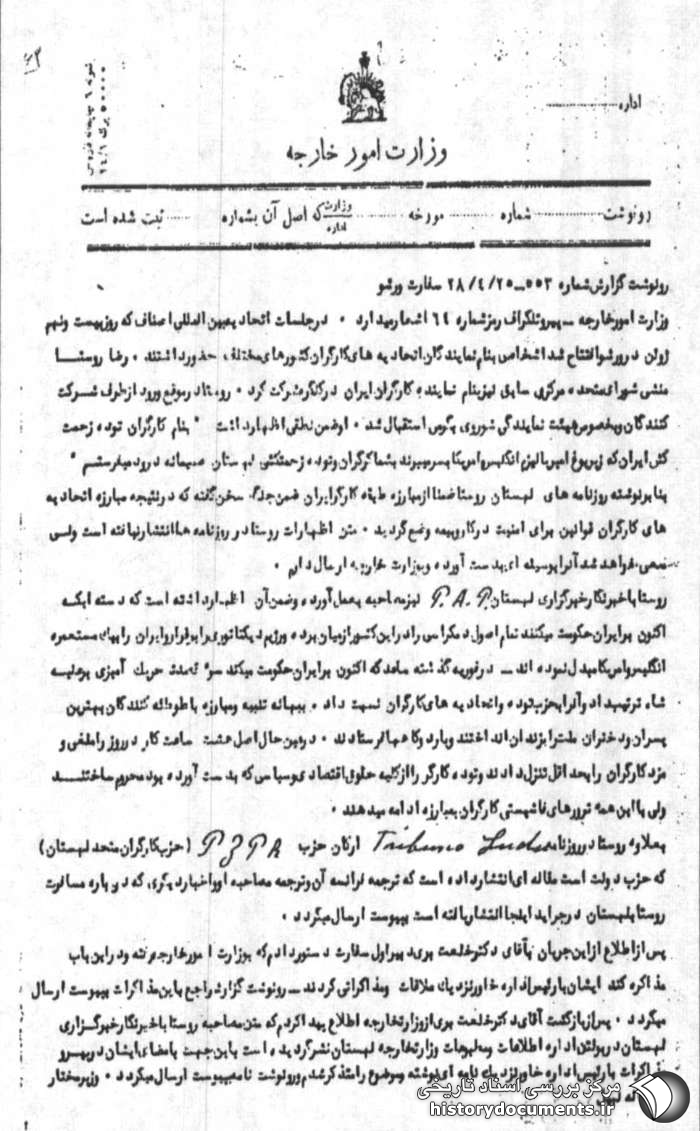 ۶۳
اداره
وزارت امور خارجه
رونوشت شماره مورخه وزارت اداره که اصل آن بشماره ثبت شده است
رونوشت گزارش شماره ۵۵۳ ــ ۲۸/۴/۲۵ سفارت ورشو
وزارت امور خارجه ــ پیرو تلگراف رمز شماره ۶۴ اشعار میدارد ۰ در جلسات اتحادیه بین المللی اصناف که روز بیست و نهم
ژوئن در ورشو افتتاح شد اشخاص بنام نمایندگان اتحادیه های کارگران کشورهای مختلف حضور داشتند ۰ رضا روستا
منشی شورای متحده مرکزی سابق نیز بنام نماینده کارگران ایران در کنگره شرکت کرد ۰ روستا در موقع ورود از طرف شرکت
کنندگان و بخصوص هیئت نمایندگی شوروی بگرمی استقبال شد ۰ او ضمن نطقی اظهار داشت " بنام کارگران توده زحمت
کش ایران که زیر یوغ امپریالیزم انگلیس و امریکا بسر میبرند بشما کارگران و توده زحمتکش لهستان صمیمانه درود میفرستم "
بنابر نوشته روزنامه های لهستان روستا ضمنا از مبارزه طبقه کارگر ایران ضمن جنگ سخن گفته که در نتیجه مبارزه اتحادیه
های کارگران قوانین برای امنیت در کار و بیمه وضع گردید ۰ متن اظهارات روستا در روزنامه ها انتشار نیافته است ولی
سعی خواهد شد آنرا بوسیله ای بدست آورده و بوزارت خارجه ارسال دارم ۰
روستا با خبرنگار خبرگزاری لهستان P.A.P نیز مصاحبه بعمل آورده و ضمن آن اظهار داشته است که دسته ایکه
اکنون بر ایران حکومت میکنند تمام اصول دمکراسی را در این کشور از میان برده و رژیم دیکتاتوری را برقرار و ایران را بپایه مستعمره
انگلیس و امریکا مبدل نموده اند ــ در فوریه گذشته که اکنون بر ایران حکومت میکند سوء قصد تحریک آمیزی بر علیه
شاه ترتیب داد و آنرا بحزب توده و اتحادیه های کارگران نسبت داد ۰ ببهانه تنبیه و مبارزه با توطئه کنندگان بهترین
پسران و دختران ملت را بزندان انداختند و بدادگاهها فرستادند ۰ در عین حال اصل هشت ساعت کار در روز را ملغی و
مزد کارگران را بحداقل تنزل دادند و توده کارگر را از کلیه حقوق اقتصادی و سیاسی که بدست آورده بود محروم ساختند
ولی با این همه ترورهای فاشیستی کارگران بمبارزه ادامه میدهند ۰
بعلاوه روستا در روزنامه Tribuna Ludu ارگان حزب PZPR (حزب کارگران متحد لهستان)
که حزب دولت است مقاله ای انتشار داده است که ترجمه فرانسه آن و ترجمه مصاحبه او و اخبار دیگری که در باره مسافرت
روستا بلهستان در جراید اینجا انتشار یافته است بپیوست ارسال میگردد ۰
پس از اطلاع از این جریان بآقای دکتر خلعت بری دبیر اول سفارت دستور دادم که بوزارت امور خارجه رفته و در این باب
مذاکره کند ایشان با رئیس اداره خاور نزدیک ملاقات و مذاکراتی کردند ــ رونوشت گزارش راجع باین مذاکرات بپیوست ارسال
میگردد ۰ پس از بازگشت آقای دکتر خلعت بری از وزارتخارجه اطلاع پیدا کردم که متن مصاحبه روستا با خبرنگار خبرگزاری
لهستان در بولتن اداره اطلاعات و مطبوعات وزارتخارجه لهستان نشر گردیده است باین جهت بامضای ایشان در پیرو
مذاکرات با رئیس اداره خاور نزدیک نامه ای نوشته و موضوع را متذکر شدم و رونوشت نامه بپیوست ارسال میگردد ۰ وزیر مختار
مرکز بررسی اسناد تاریخی
historydocuments.ir